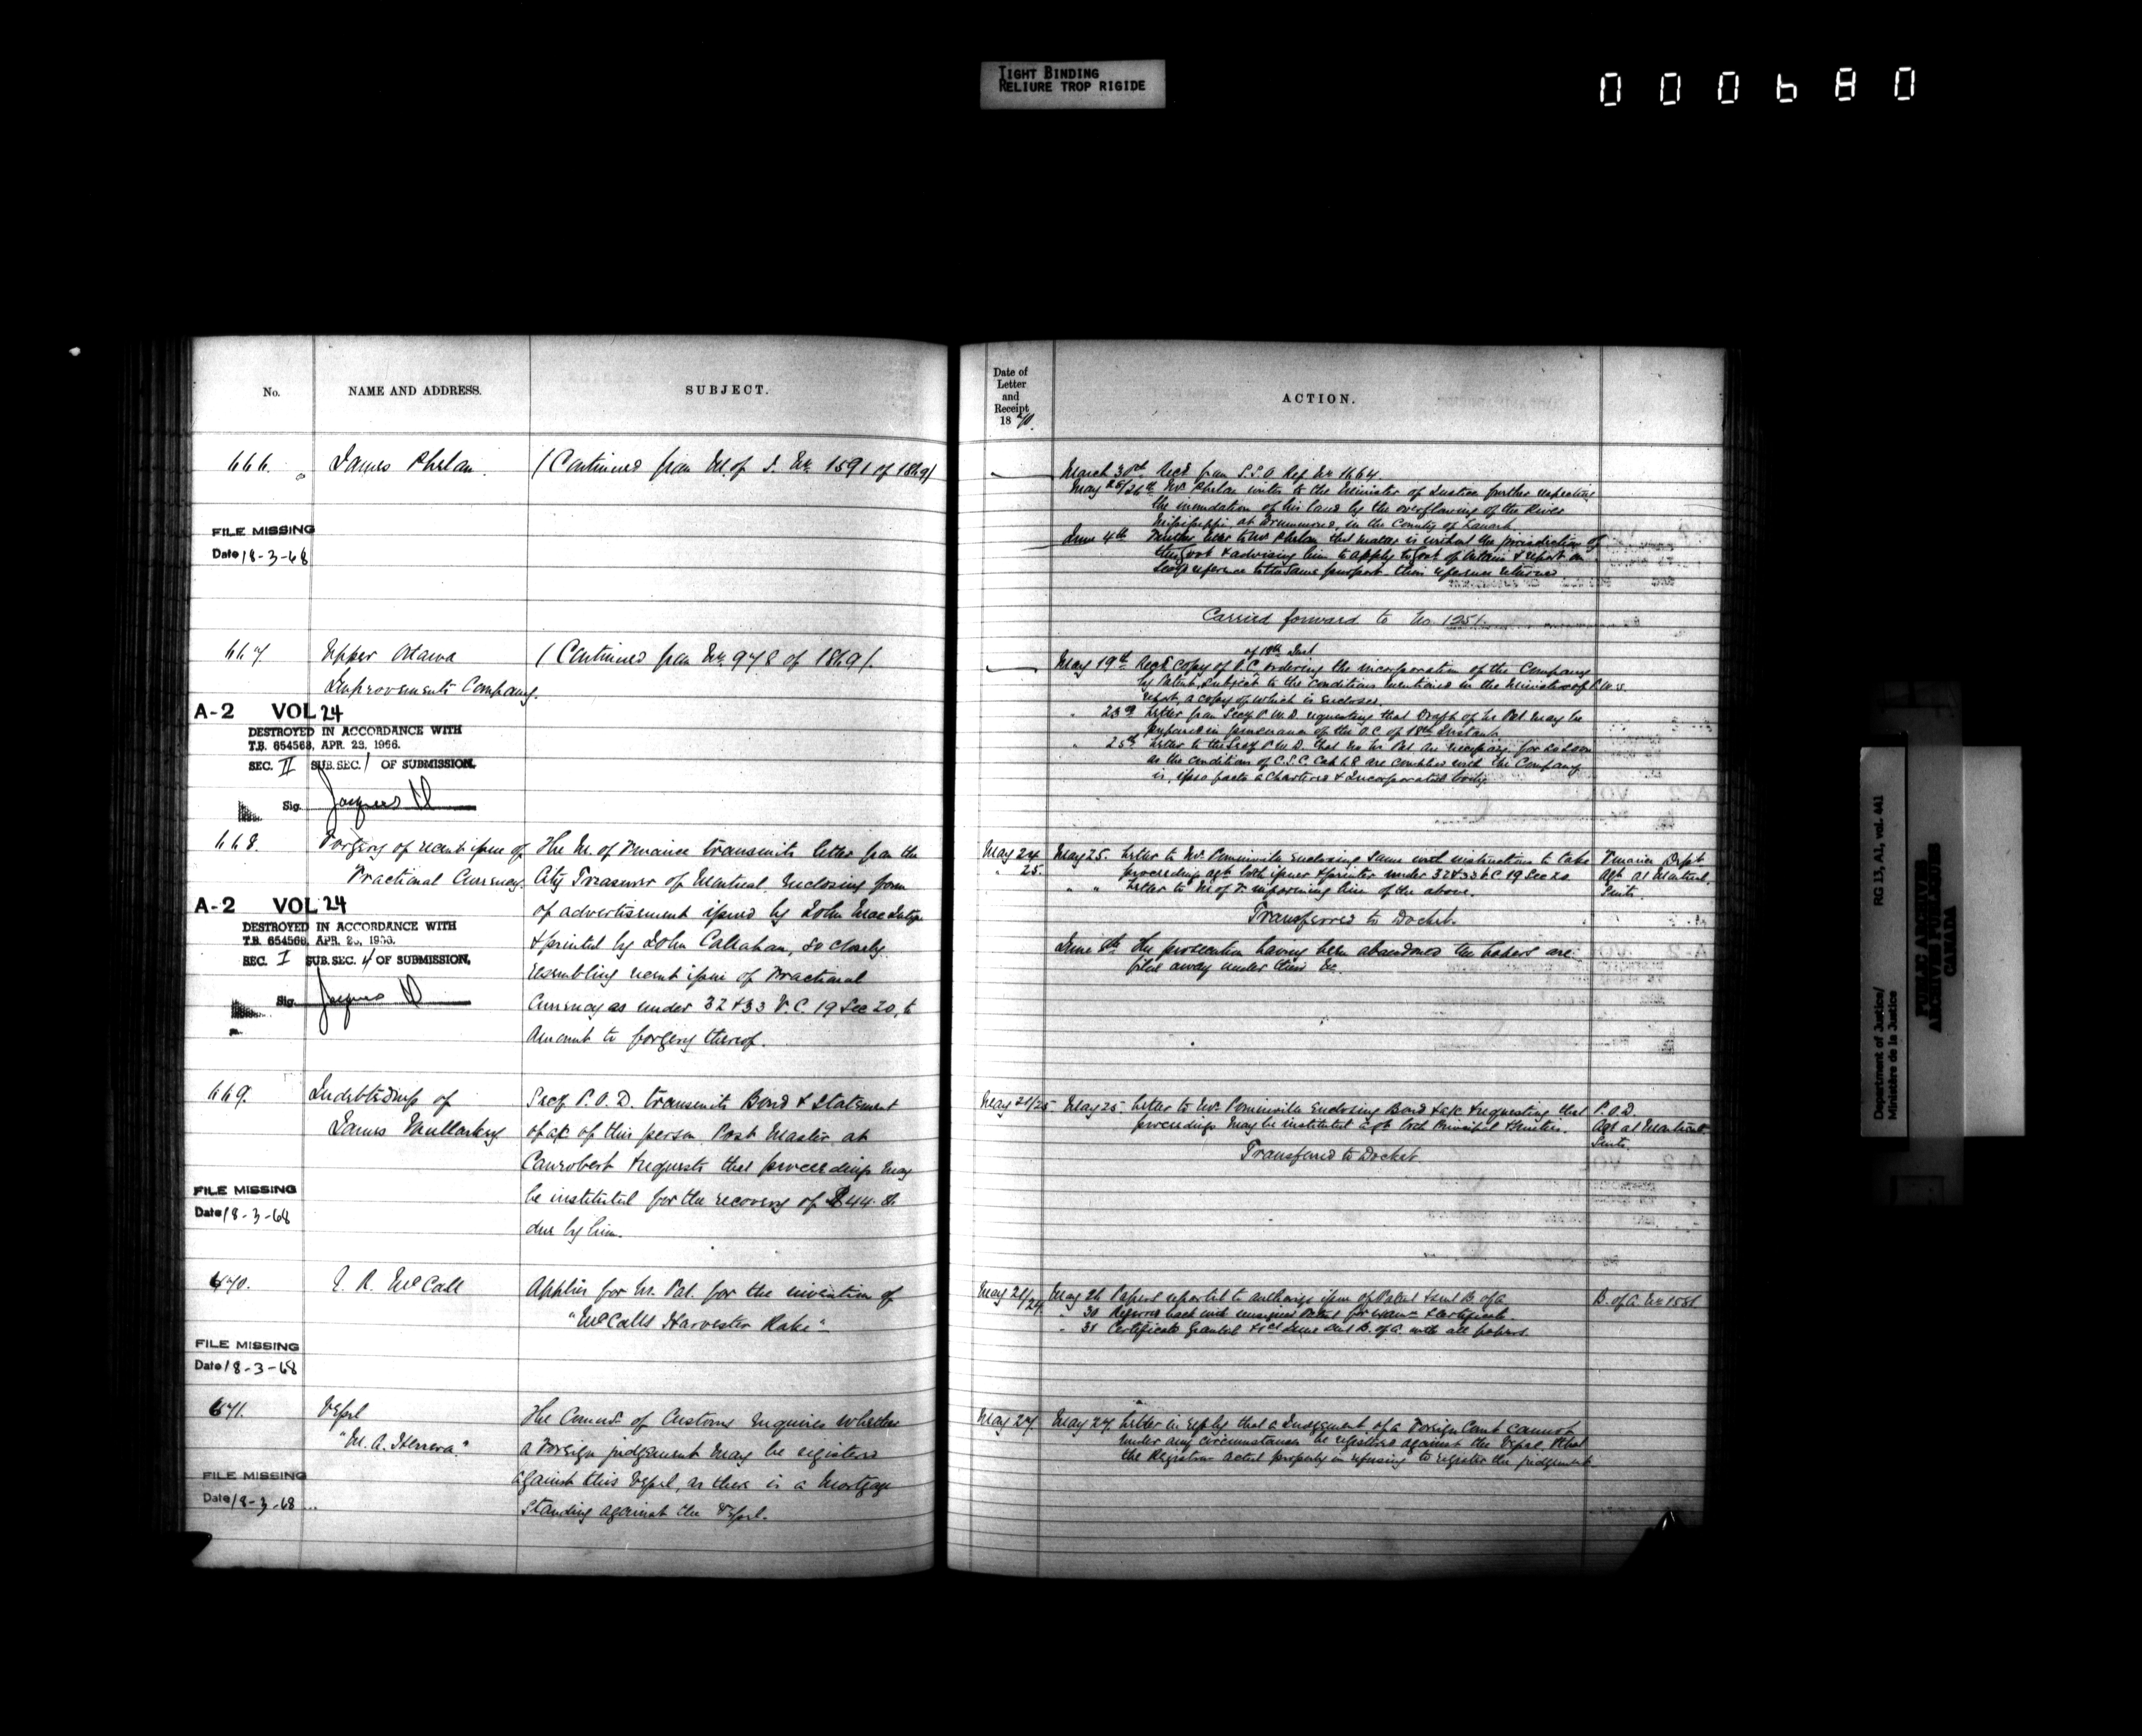 TIGHT BINDING
RELIURE TROP RIGIDE
000680
No.
NAME AND ADDRESS.
SUBJECT.
666.
James Phelan.
(Continued from M. of J. No. 1591 of 1869)
FILE MISSING
Date 18-3-68
667.
Upper Ottawa
Improvements Company.
(Continued from No. 978 of 1869).
A-2 VOL 24
DESTROYED IN ACCORDANCE WITH
T.B. 654568, APR. 23, 1966.
SEC. II SUB. SEC. 1 OF SUBMISSION.
Sig.
668.
Forgery of recent issue of
Fractional Currency.
The M. of Finance transmits letter from the
City Treasurer of Montreal, enclosing form
of advertisement issued by John
& printed by John Callahan, so closely
resembling recent issue of Fractional
Currency as under 32 & 33 V. C. 19 Sec 20, to
amount to forgery thereof.
A-2 VOL 24
DESTROYED IN ACCORDANCE WITH
T.B. 654568, APR.
SEC. I SUB. SEC. 4 OF SUBMISSION.
Sig.
669.
Indebtedness of
James Mullarkey
Secy. P. O. D. transmits Bond & Statement
of a/c of this person Post Master at
Canrobert & requests that proceedings may
be instituted for the recovery of
due by him.
FILE MISSING
Date 18-3-68
670.
McCall
Applies for Lr. Pat. for the invention of
"McCalls Harvester Rake"
FILE MISSING
Date 18-3-68
671.
Vessel
"M. A. Herrera."
The Commr. of Customs enquires whether
a Foreign judgement may be registered
against this Vessel, as there is a Mortgage
standing against the Vessel.
FILE MISSING
Date 18-3-68
Date of
Letter
and
Receipt
1870.
ACTION.
March 30th. Recd. from S.S.O. Ref No 1664.
May 25/26th. Mr. Phelan writes to the Minister of Justice further respecting
the inundation of his land by the overflowing of the River
Mississippi, at Drummond, in the County of Lanark
June 4th Further letter to Mr Phelan that matter is without the jurisdiction of
this Govt & advising him to apply to Govt of Ontario & report on
reference to the same purport then reference returned
Carried forward to No. 1251.
of 18th Inst
May 19th Recd. copy of O.C. ordering the incorporation of the Company
by Patent, subject to the conditions mentioned in the Minister of P.W.s
report, a copy of which is enclosed.
" 23rd Letter from Secy P.W.D. requesting that Draft of Lr Pat may be
prepared in pursuance of the O.C. of 18th Instant.
" 25th Letter to the Secy P.W.D. that no Lr. Pat. are necessary, for as soon
as the conditions of C.S.C. Cap 68 are complied with the Company
is, ipso facto a Chartered & Incorporated body.
May 24
" 25.
May 25. Letter to Mr. Pominville enclosing same with instructions to take
proceedings agt both issuer & printer under 32 & 33 V. C 19 Sec 20
" " Letter to M of F. informing him of the above.
Transferred to Docket.
June 8th The prosecution having been abandoned the papers are
filed away under this No.
Finance Dept
Agt at Montreal.
Suits.
May 21/25
May 25. Letter to Mr. Pominville enclosing Bond & a/c & requesting that
proceedings may be instituted agt both Principal & Sureties.
Transferred to Docket
P.O.D.
Agt at Montreal
Suits.
May 21/24
May 26 Papers reported to authorize issue of Patent & sent B. of A
" 30 Referred back with unsigned Patent for exam. & certificate.
" 31 Certificate Granted & Recd. same sent B. of A. with all papers.
B. of A. No 1551
May 27
May 27. Letter in reply that a Judgement of a Foreign Court cannot
under any circumstances be registered against the Vessel & that
the Registrar acted properly in refusing to register the judgement.
Department of Justice/
Ministère de la Justice
RG 13, A1, vol. 441
PUBLIC ARCHIVES
ARCHIVES PUBLIQUES
CANADA